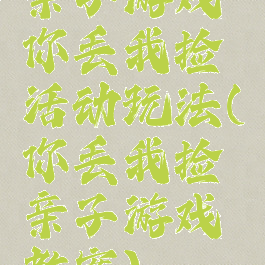 亲子游戏
你丢我捡
活动玩法(
你丢我捡
亲子游戏
教案)